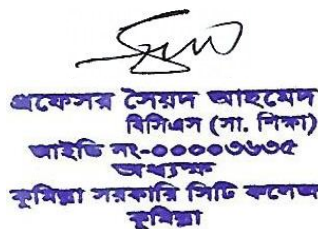 প্রফেসর সৈয়দ আহমেদ
বিসিএস (সা. শিক্ষা)
আইডি নং-০০০০৩৬৩৫
অধ্যক্ষ
কুমিল্লা সরকারি সিটি কলেজ
কুমিল্লা